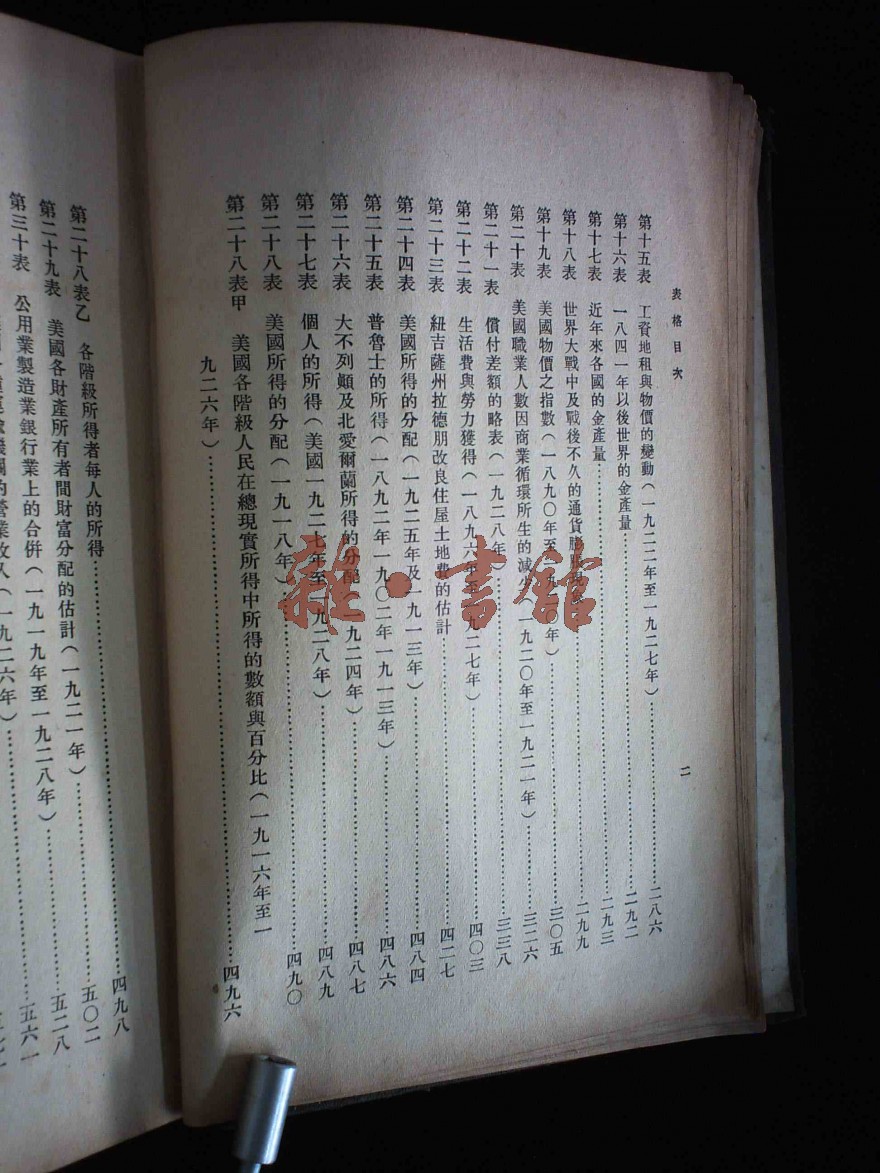 表格目次
二
第十五表 工資地租與物價的變動(一九二二年至一九二七年)……二八六
第十六表 一八四一年以後世界的金產量……二九二
第十七表 近年來各國的金產量……二九三
第十八表 世界大戰中及戰後不久的通貨膨脹現象……二九九
第十九表 美國物價之指數(一八九〇年至一九二〇年)……三〇五
第二十表 美國職業人數因商業循環所生的減少(一九二〇年至一九二一年)……三二六
第二十一表 償付差額的略表(一九二八年)……三三八
第二十二表 生活費與勞力獲得(一八九六年至一九二七年)……四〇三
第二十三表 紐吉薩州拉德朋改良住屋土地費的估計……四二七
第二十四表 美國所得的分配(一九二五年及一九一三年)……四八四
第二十五表 普魯士的所得(一八九二年一九〇二年一九一三年)……四八六
第二十六表 大不列顛及北愛爾蘭所得的分配(一九二四年)……四八七
第二十七表 個人的所得(美國一九二七年至一九二八年)……四八九
第二十八表 美國所得的分配(一九一八年)……四九〇
第二十八表甲 美國各階級人民在總現實所得中所得的數額與百分比(一九一六年至一
九二六年)……四九六
第二十八表乙 各階級所得者每人的所得……四九八
第二十九表 美國各財產所有者間財富分配的估計(一九二一年)……五〇二
第三十表 公用業製造業銀行業上的合併(一九一九年至一九二八年)……五二八
的營業收入(一九二六年)……五六一
雜·書館